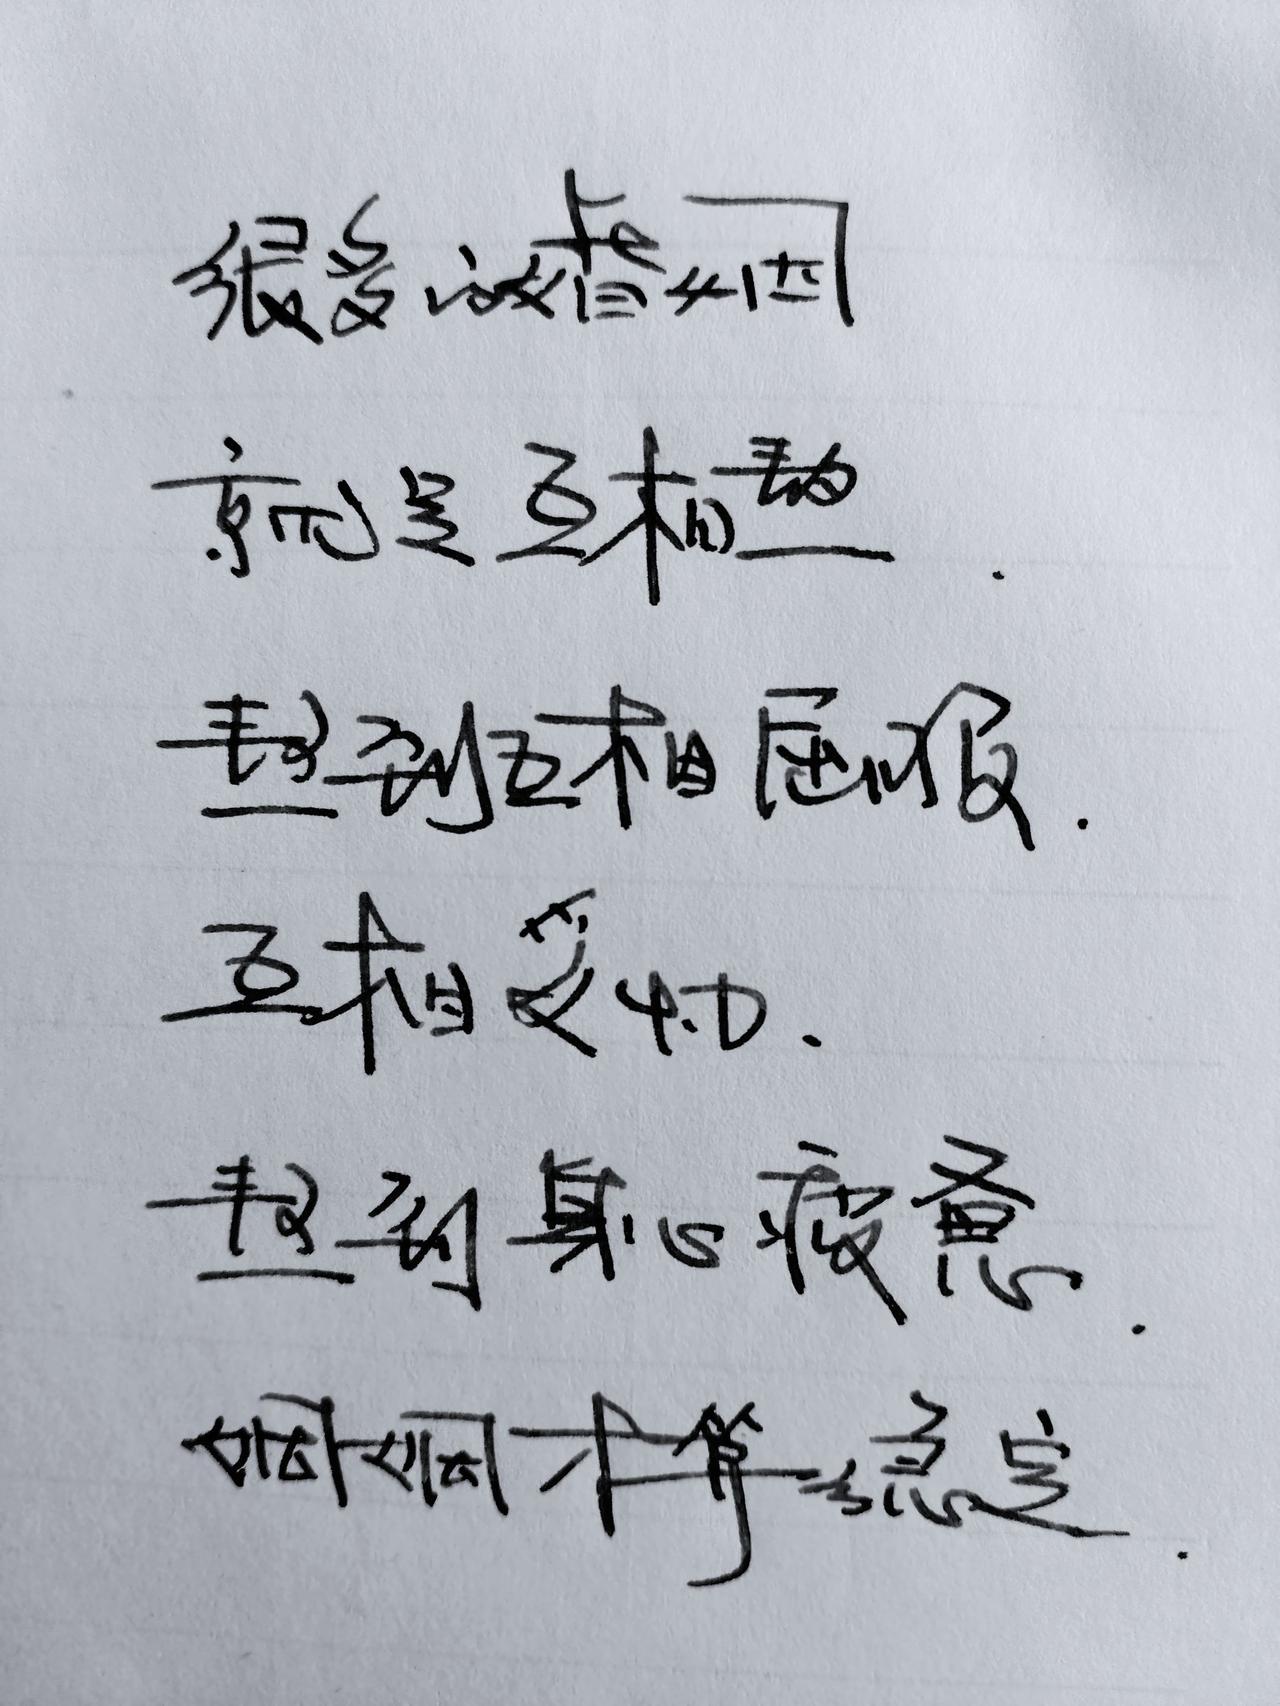 很多的婚姻
就是互相熬.
熬到互相屈服.
互相妥协.
熬到身心疲惫.
姻姻才算稳定.